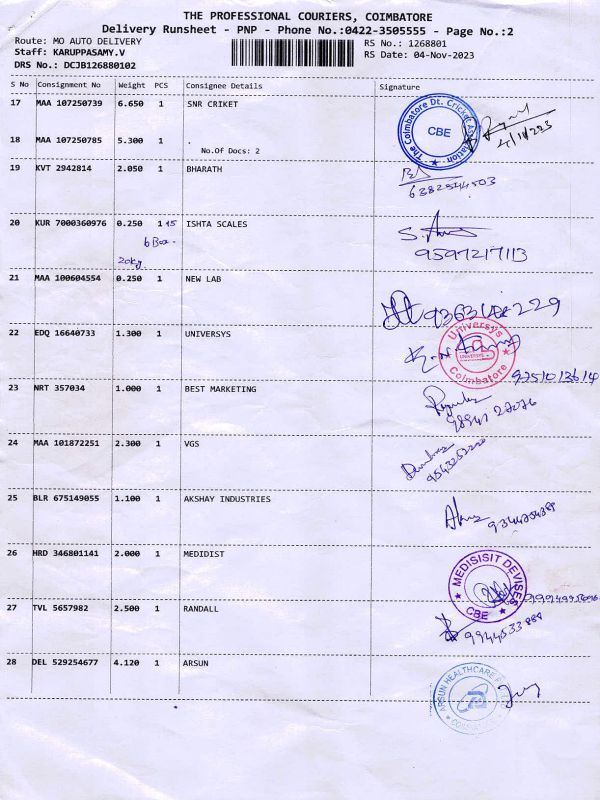 THE PROFESSIONAL COURIERS, COIMBATORE
Delivery Runsheet - PNP - Phone No.:0422-3505555 - Page No.:2
Route: MO AUTO DELIVERY
RS No.: 1268801
Staff: KARUPPASAMY.V
RS Date: 04-Nov-2023
DRS No.: DCJB126880102
S No Consignment No Weight PCS Consignee Details Signature
17 MAA 107250739 6.650 1 SNR CRIKET
The Coimbatore Dt. Cricket Association CBE
18 MAA 107250785 5.300 1 .
No.Of Docs: 2
19 KVT 2942814 2.050 1 BHARATH
6382544503
20 KUR 7000360976 0.250 1 15 ISHTA SCALES
6 Box.
20kg
9597217113
21 MAA 100604554 0.250 1 NEW LAB
22 EDQ 16640733 1.300 1 UNIVERSYS
Universys Coimbatore
UNIVERSYS
23 NRT 357034 1.000 1 BEST MARKETING
98941 27076
24 MAA 101872251 2.300 1 VGS
25 BLR 675149055 1.100 1 AKSHAY INDUSTRIES
26 HRD 346801141 2.000 1 MEDIDIST
MEDISISIT DEVISES CBE
27 TVL 5657982 2.500 1 RANDALL
28 DEL 529254677 4.120 1 ARSUN
ARSUN HEALTHCARE